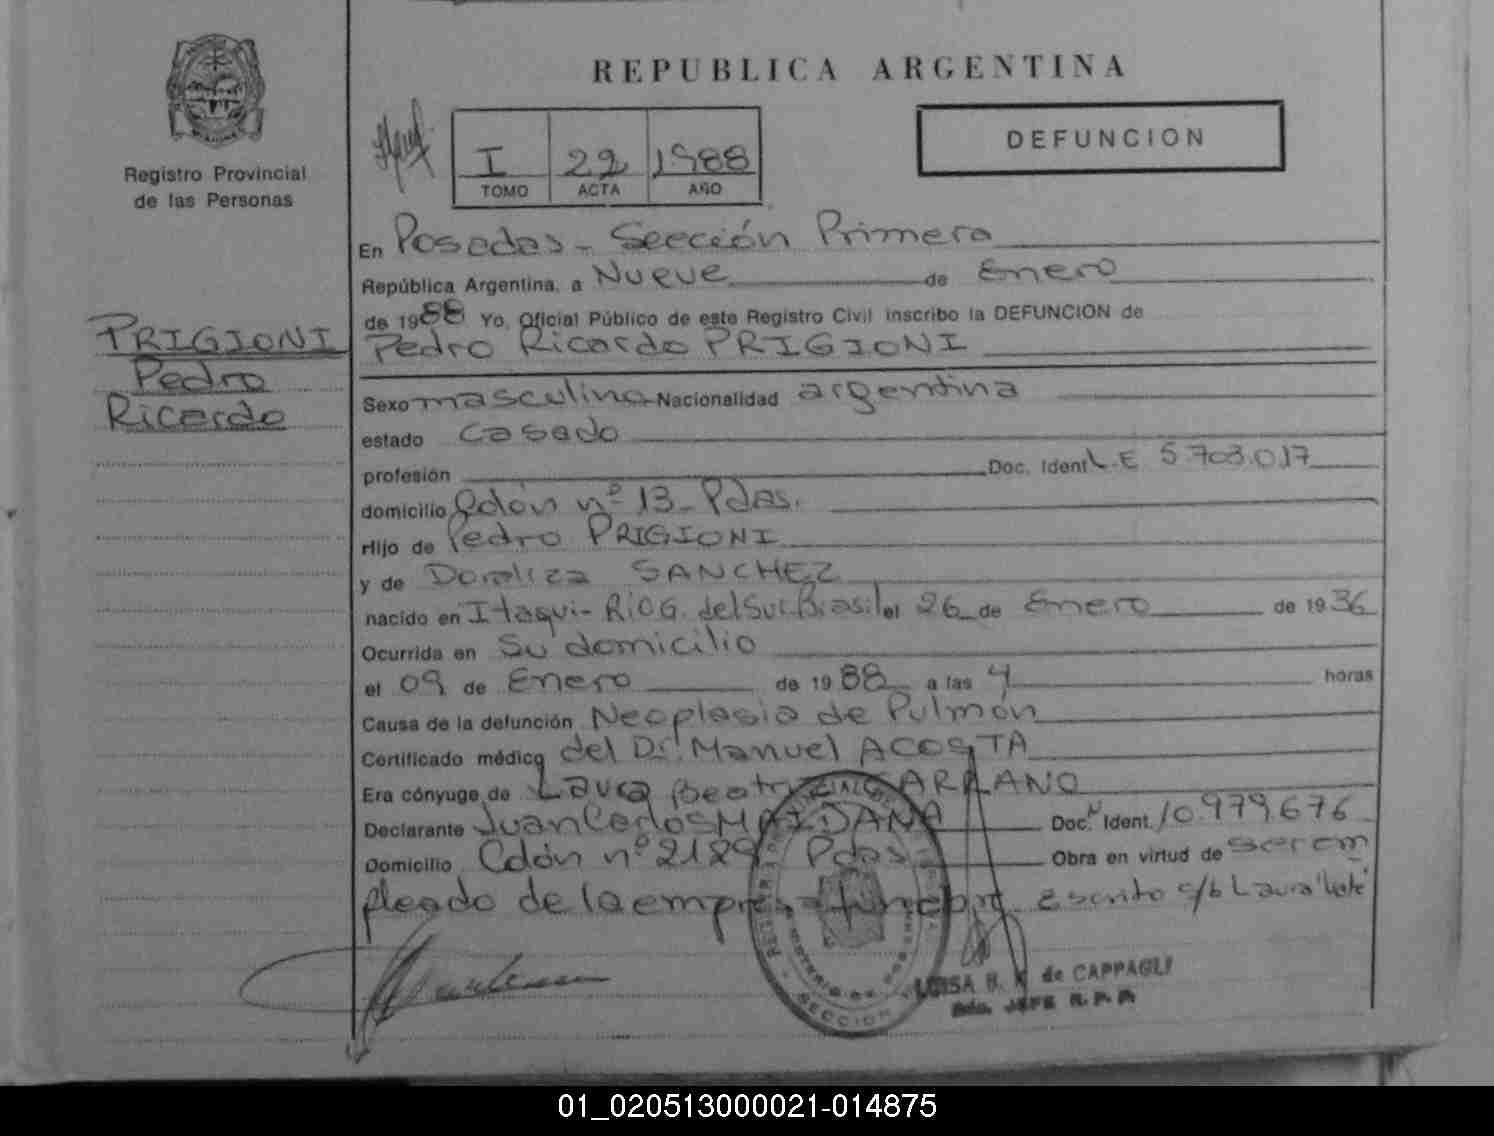 REPUBLICA ARGENTINA
Registro Provincial
de las Personas
I 22 1988
TOMO ACTA AÑO
DEFUNCION
PRIGIONI
Pedro
Ricardo
En Posadas - Sección Primera
República Argentina, a Nueve de Enero
de 1988 Yo, Oficial Público de este Registro Civil inscribo la DEFUNCION de
Pedro Ricardo PRIGIONI
Sexo masculino Nacionalidad argentina
estado casado
profesión Doc. Ident L.E 5.703.017
domicilio Colón nº 13 - Pdas.
Hijo de Pedro PRIGIONI
y de Doraliza SANCHEZ
nacido en Itaqui - Río G. del Sur. Brasil el 26 de Enero de 1936
Ocurrida en Su domicilio
el 09 de Enero de 1988 a las 4 horas
Causa de la defunción Neoplasia de Pulmón
Certificado médico del Dr. Manuel ACOSTA
Era cónyuge de Laura Beatriz
Declarante Juan Carlos MAIDANA Doc. Ident. 10.979.676
Domicilio Colón nº 2129 Pdas Obra en virtud de ser em
pleado de la empresa fúnebre. Escrito s/b Laura "Vale"
LUISA de CAPPAGLI
JEFE R. P. P.
SECCION
01_020513000021-014875